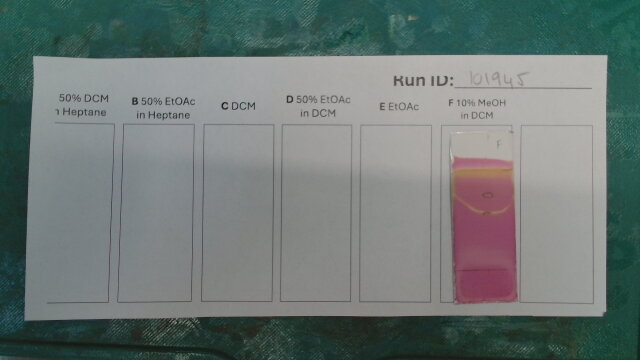 Run ID: 101945
50% DCM
in Heptane
B 50% EtOAc
in Heptane
C DCM
D 50% EtOAc
in DCM
E EtOAc
F 10% MeOH
in DCM
F